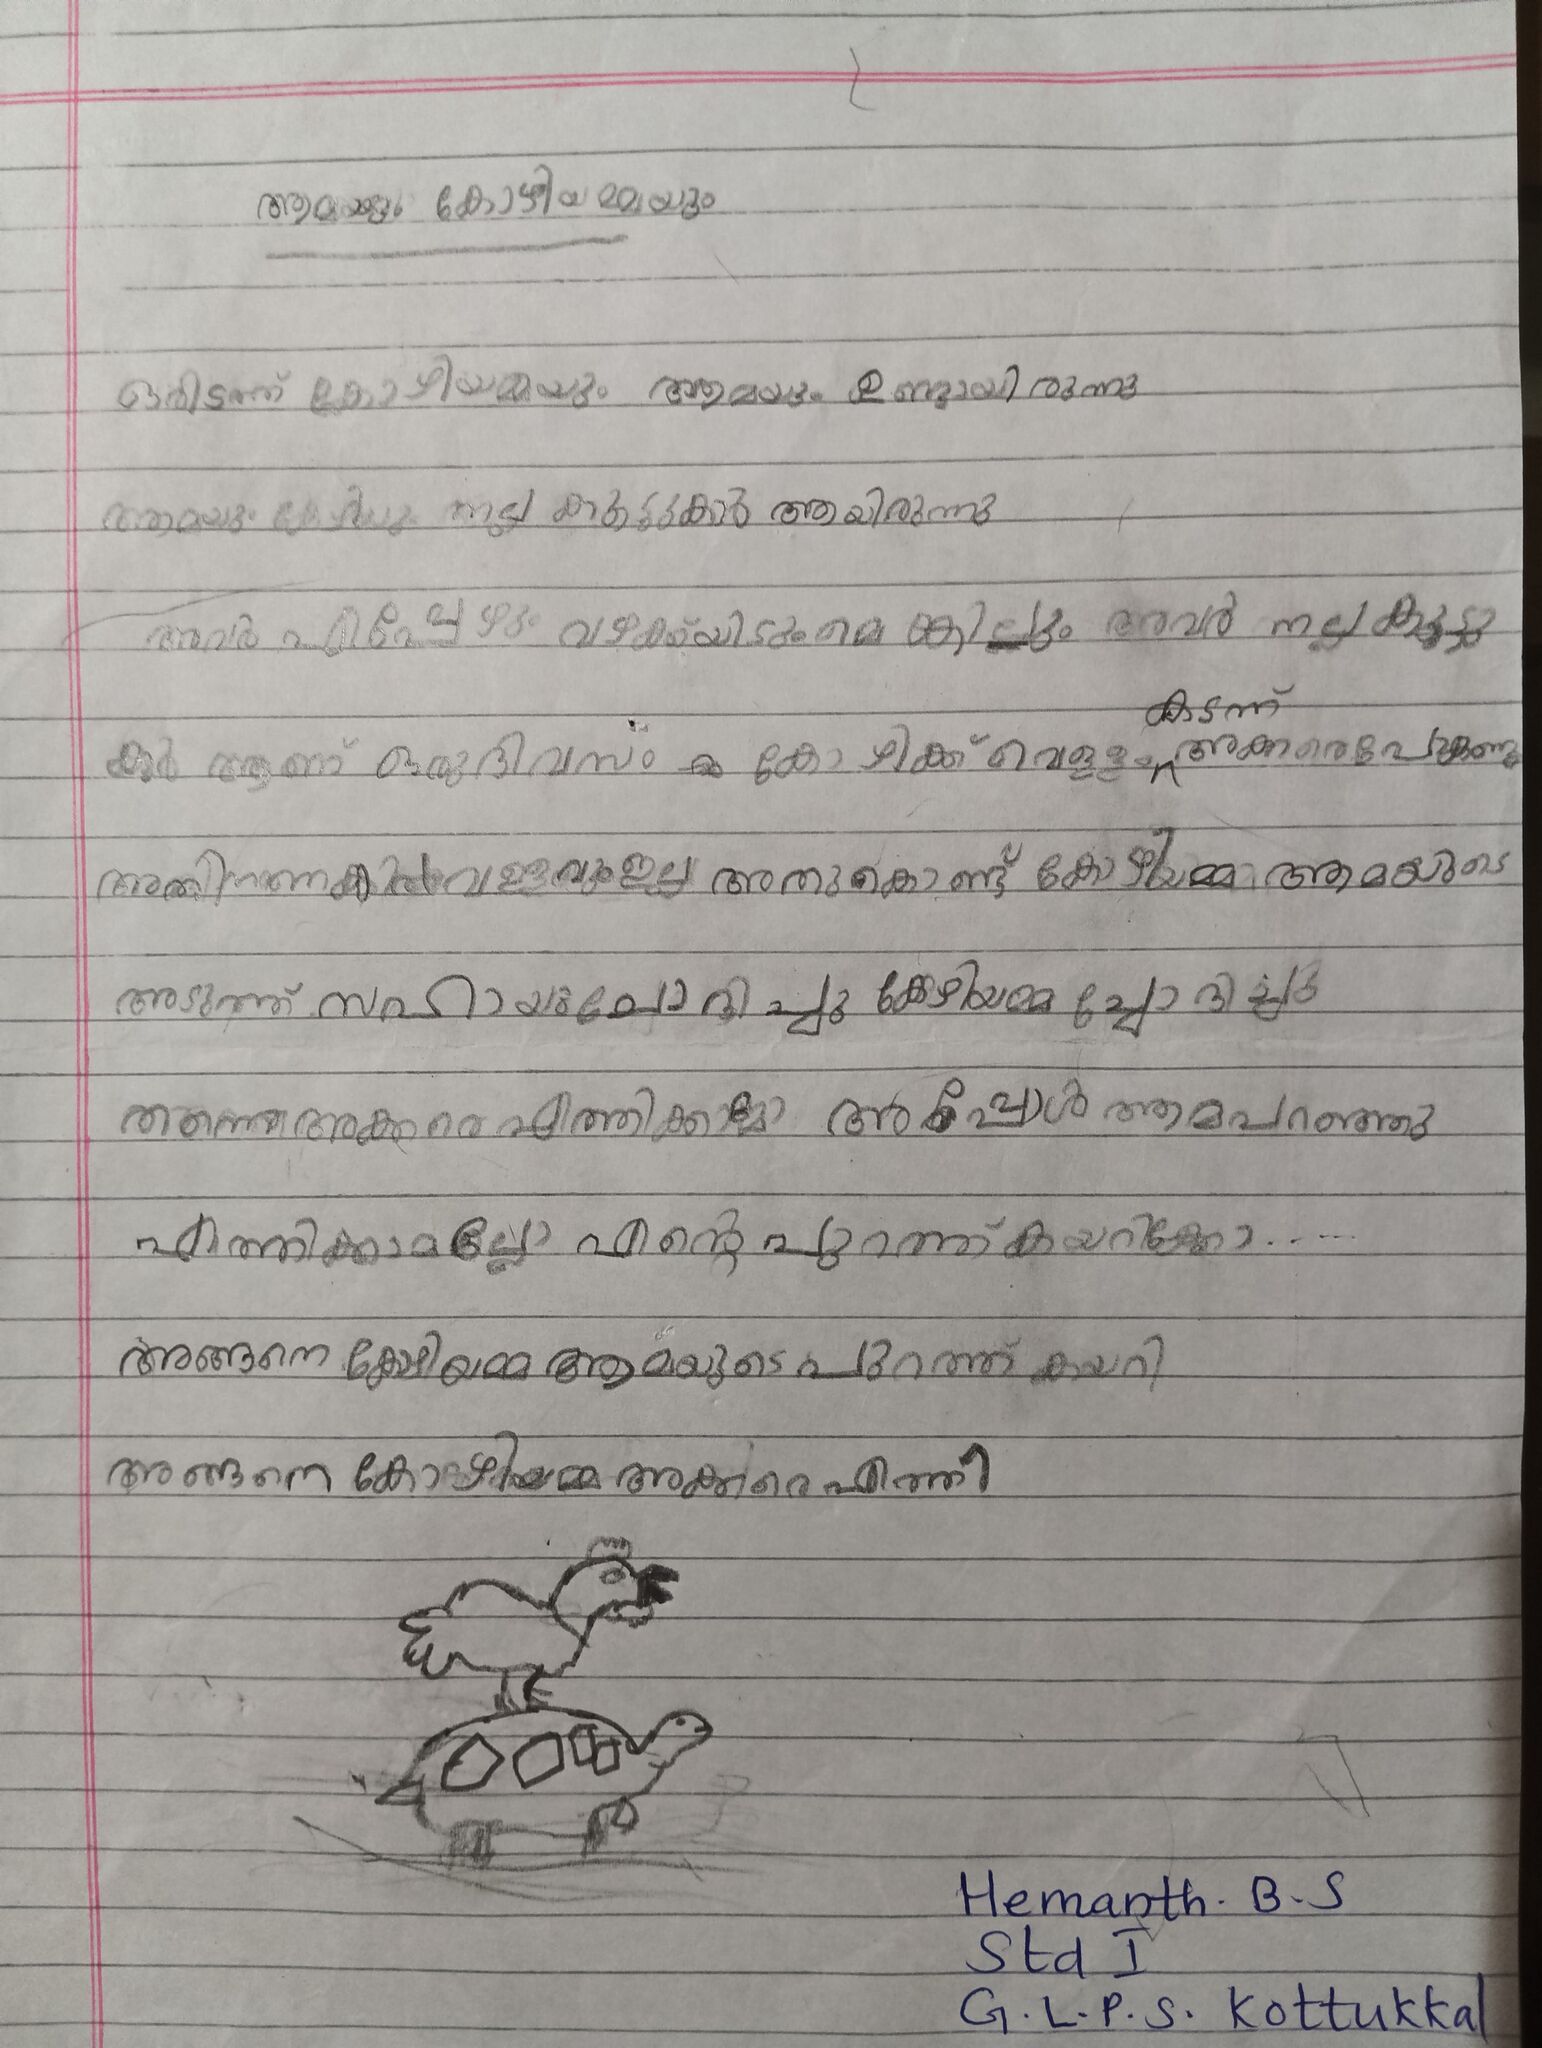 ആമയും കോഴിയമ്മയും
ഒരിടത്ത് കോഴിയമ്മയും ആമയും ഉണ്ടായിരുന്നു
ആമയും കോഴിയും നല്ല കൂട്ടുകാർ ആയിരുന്നു
അവർ എപ്പോഴും വഴക്കിയിടുംമെങ്കില്ലും അവർ നല്ല കൂട്ടു
കർ ആണ് ഒരുദിവസം കോഴിക്ക് വെള്ളം കടന്ന് അക്കരെപോകണു
അതിനണകിൽ വള്ളവുംഇല്ല അതുകൊണ്ട് കോഴിയമ്മ ആമയുടെ
അടുത്ത് സഹായം ചോദിച്ചു കോഴിയമ്മ ചോദിച്ചു
തന്നെഅക്കരെഎത്തിക്കാമോ അപ്പോൾ ആമപറഞ്ഞു
എത്തിക്കാമല്ലോ എന്റെ പുറത്ത് കയറിക്കോ......
അങ്ങനെ കോഴിയമ്മ ആമയുടെ പുറത്ത് കയറി
അങ്ങനെ കോഴിയമ്മ അക്കരെ എത്തി
Hemanth. B.S
Std I
G.L.P.S. Kottukkal